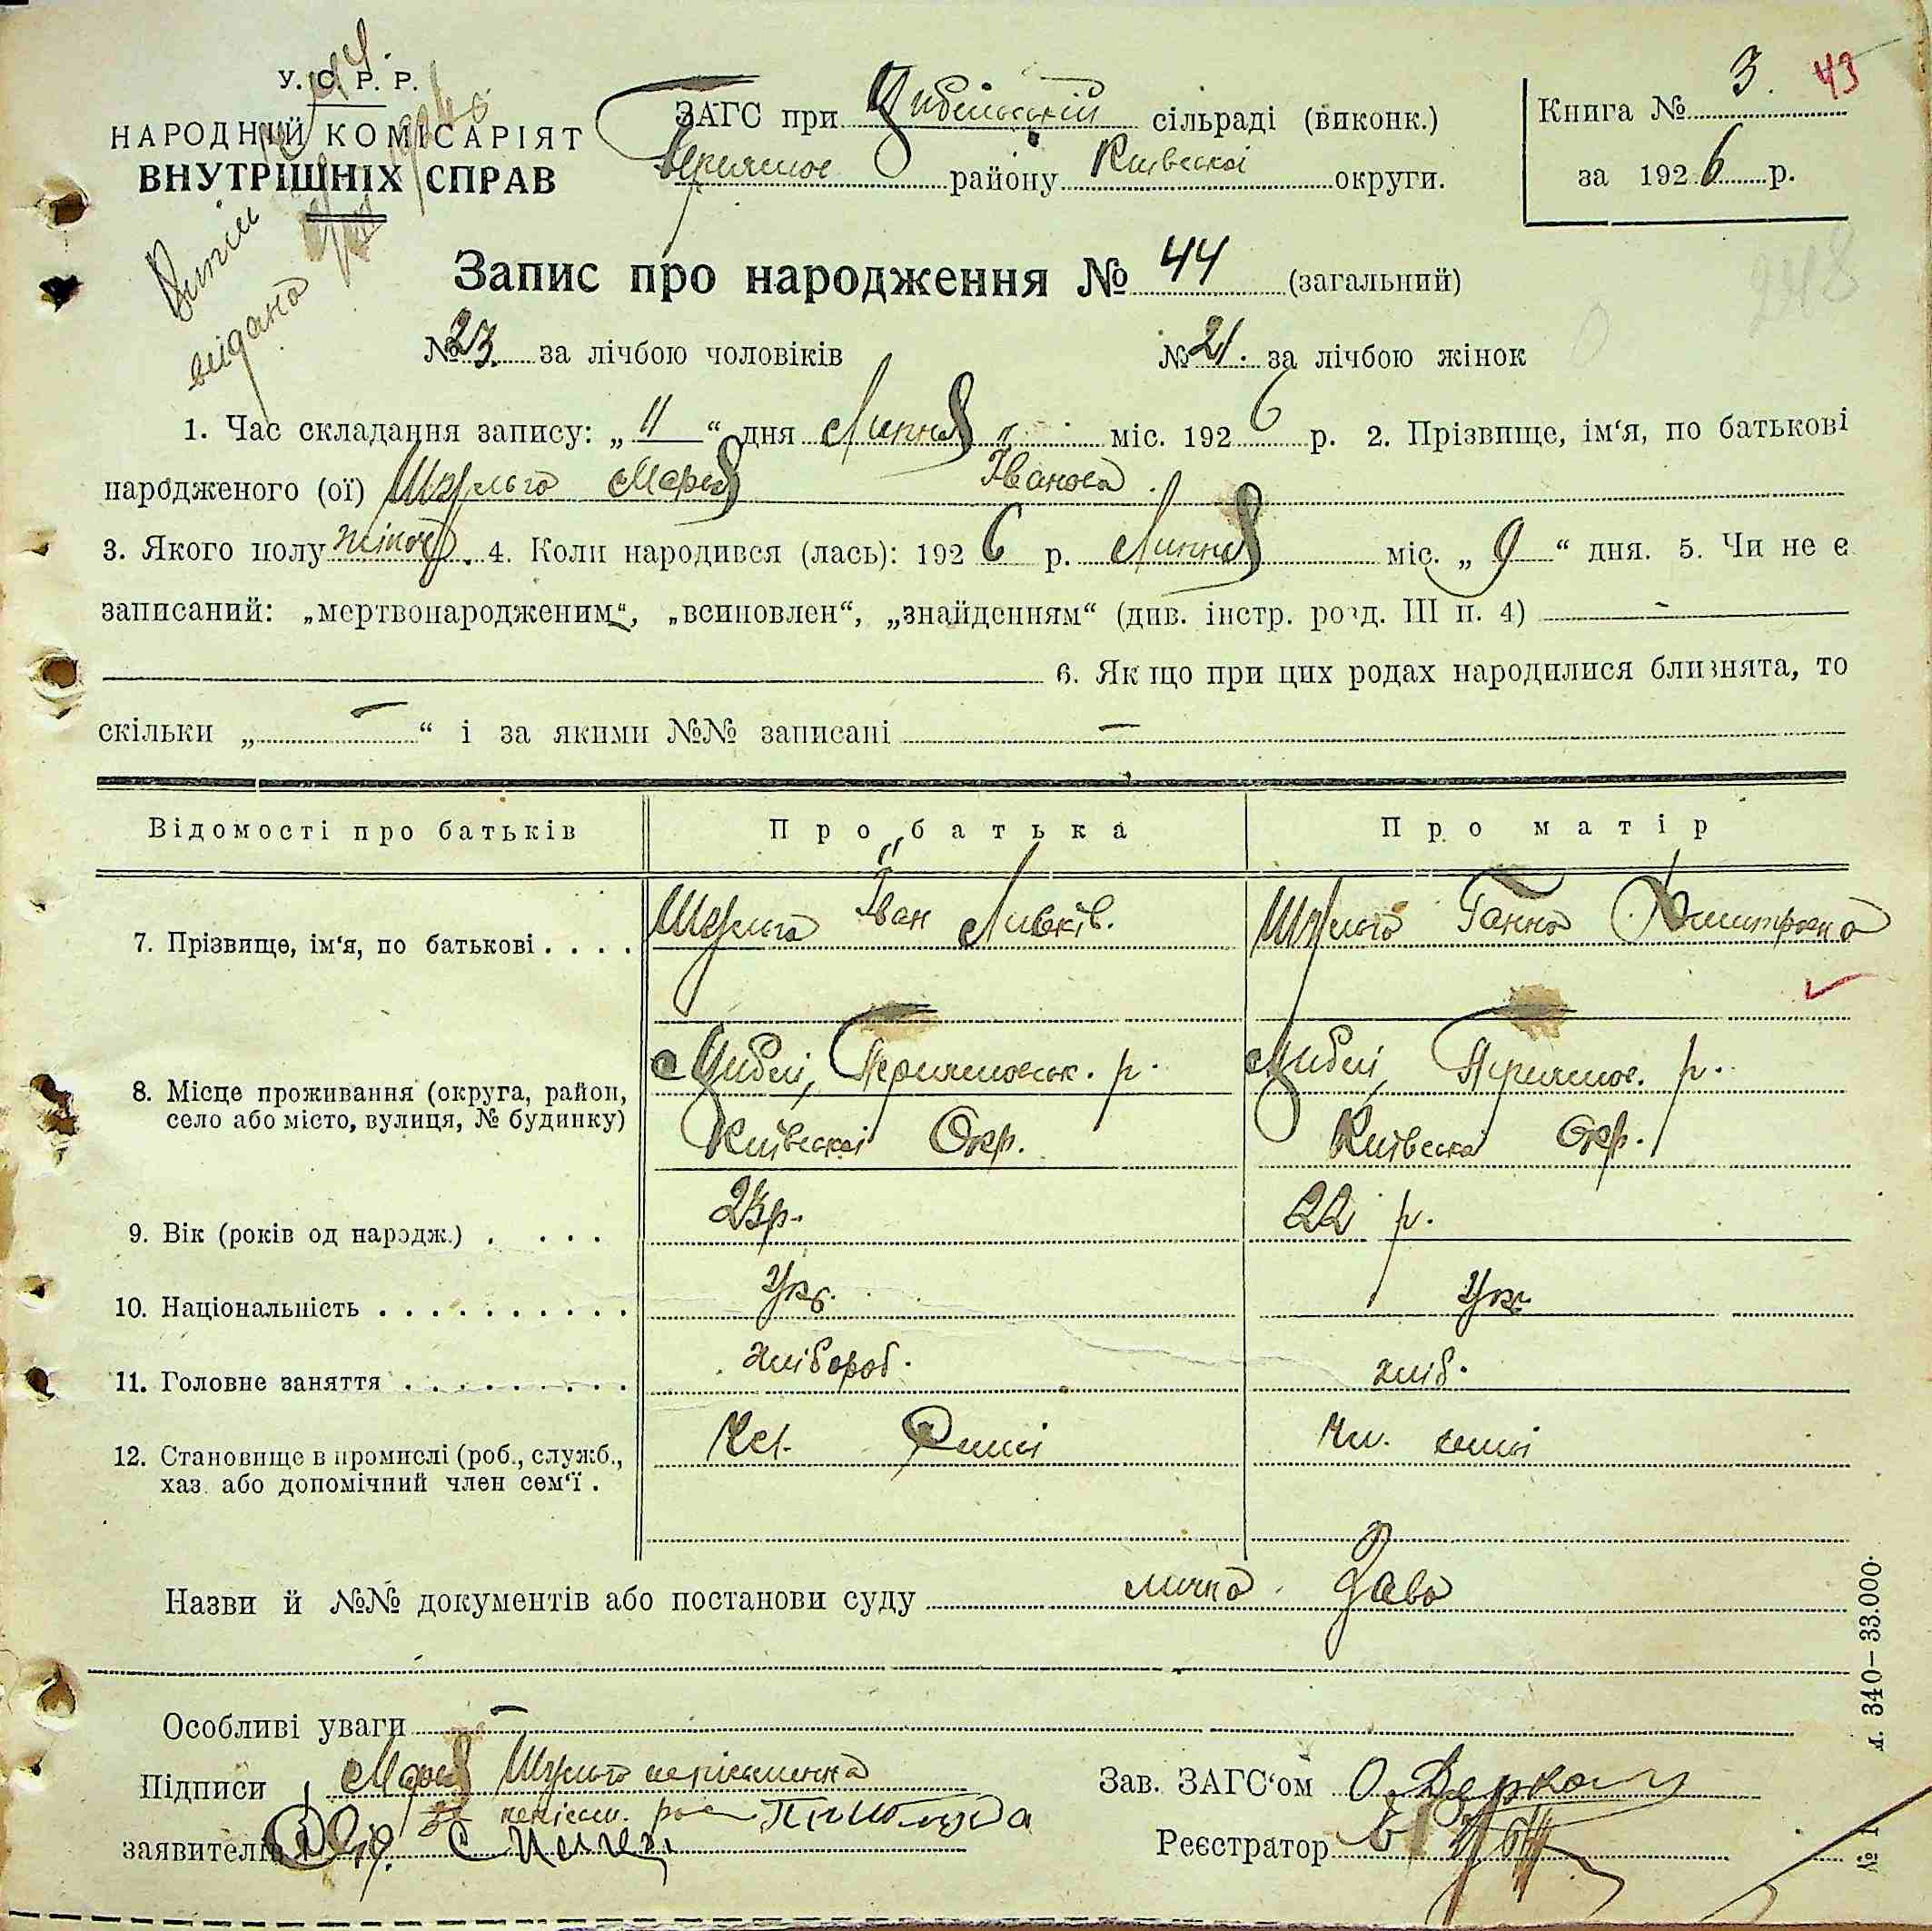 У. С. Р. Р.
НАРОДНИЙ КОМІСАРІЯТ
ВНУТРІШНІХ СПРАВ
видана
ЗАГС при Цибельській сільраді (виконк.)
району Київської округи.
Книга № 3. 43
за 1926 р.
248
Запис про народження № 44 (загальний)
№ 23. за лічбою чоловіків № 21. за лічбою жінок
1. Час складання запису: „11“ дня Липня міс. 1926 р. 2. Прізвище, ім‘я, по батькові
народженого (ої) Шульга Марія Іванова.
3. Якого полу жіноч. 4. Коли народився (лась): 1926 р. Липня міс. „9“ дня. 5. Чи не є
записаний: „мертвонародженим“, „всиновлен“, „знайденням“ (див. інстр. розд. III п. 4) -
6. Якщо при цих родах народилися близнята, то
скільки „ - “ і за якими №№ записані -
Відомості про батьків Про батька Про матір
7. Прізвище, ім‘я, по батькові . . . . Шульга Іван Шульга Ганна Дмитровна
8. Місце проживання (округа, район, село або місто, вулиця, № будинку) с Цибелі, р. Цибелі, р.
Київської Окр. Київськоі Окр.
9. Вік (років од народж.) . . . . 23р. 22 р.
10. Національність . . . . . . . . . . Укр. Укр
11. Головне заняття . . . . . . . . . хлібороб. хліб.
12. Становище в промислі (роб., служб., хаз. або допомічний член сем‘ї . Чл. Чл. семьі
Назви й №№ документів або постанови суду
Особливі уваги -
Підписи Марія Шульга неписьменна
заявителів
Зав. ЗАГС‘ом О. Деркач
Реєстратор
м. 340—33.000.
№ 1